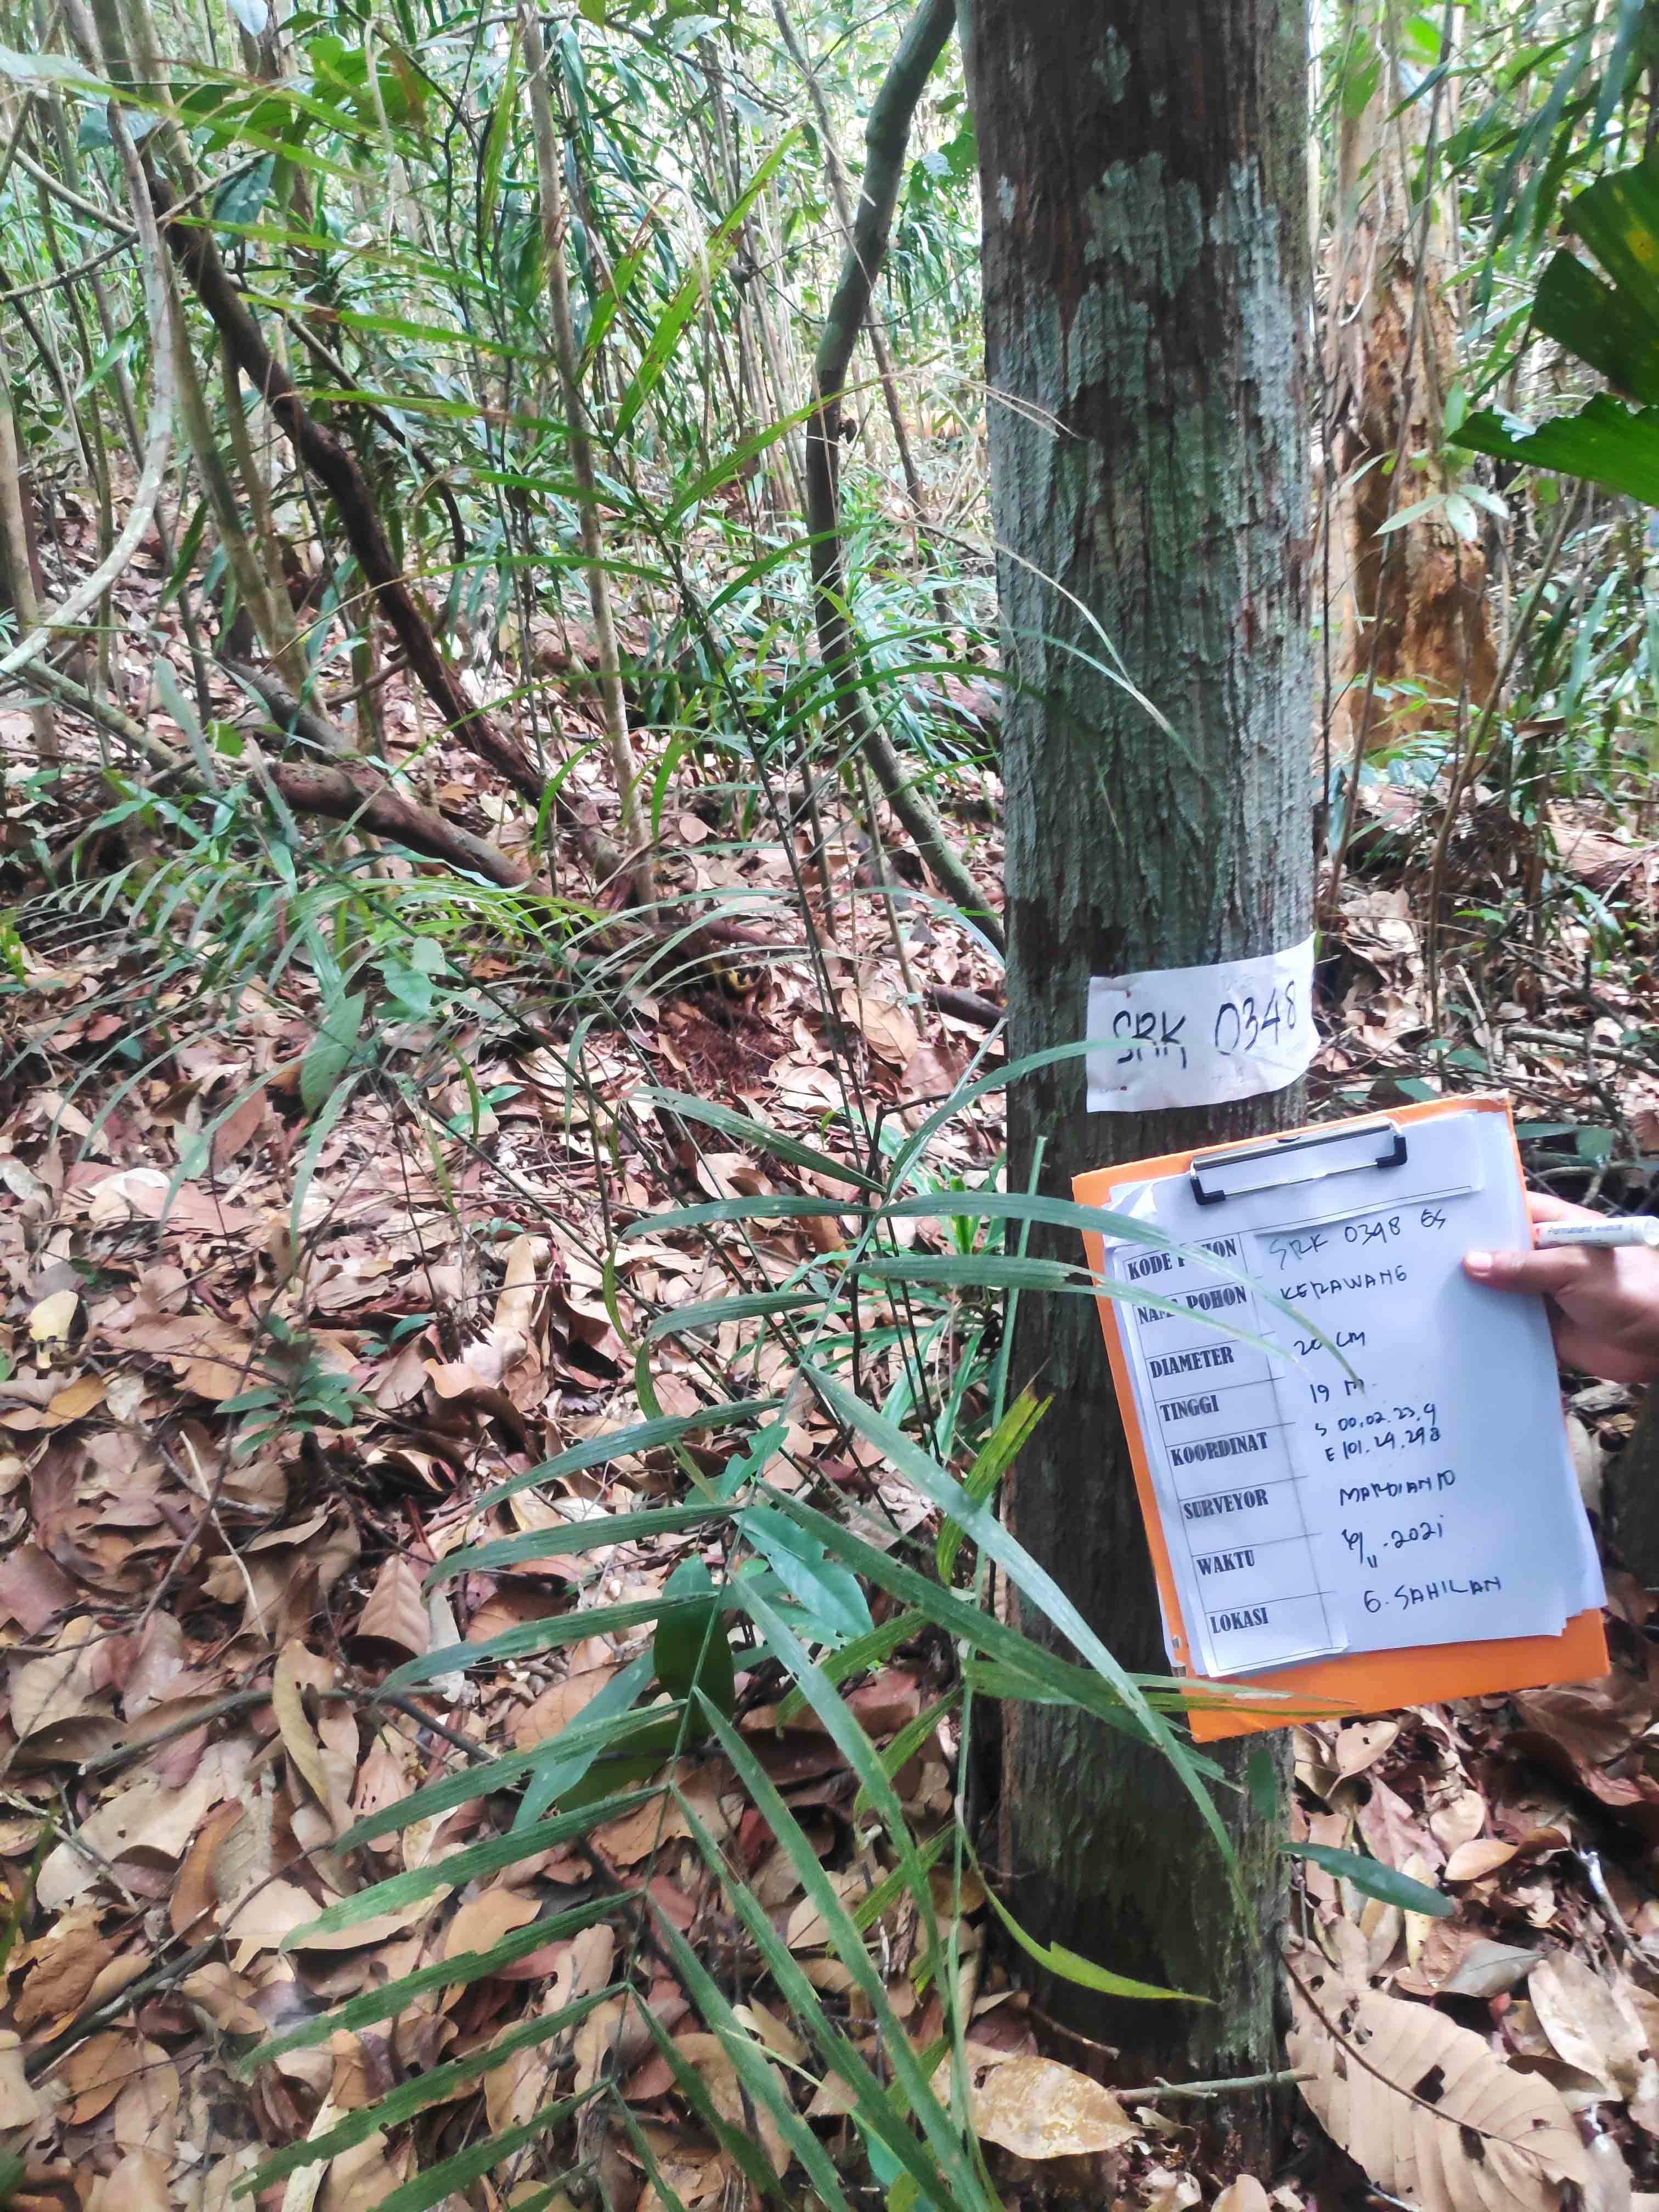 SRK 0348
KODE POHON SRK 0348 ES
NAMA POHON KERAWANG
DIAMETER 20 CM
TINGGI 19 M
KOORDINAT S 00.02.23.9
E 101.29.298
SURVEYOR MARDIANTO
WAKTU 2021
LOKASI G. SAHILAN